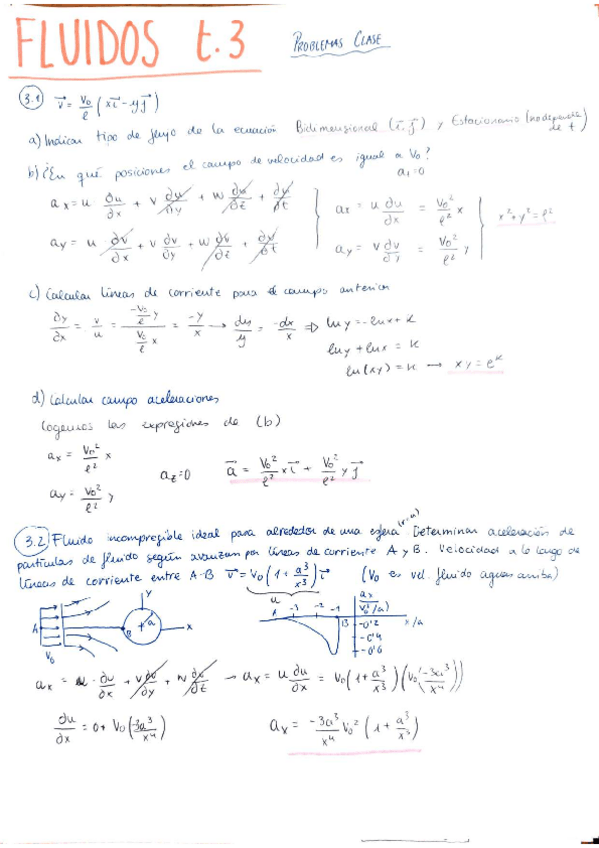 FLUIDOS t.3
PROBLEMAS CLASE
3.1 v⃗ = V₀/ℓ (x i⃗ - y j⃗)
a) Indicar tipo de flujo de la ecuación Bidimensional (i⃗, j⃗) y Estacionario (no depende de t)
b) ¿En qué posiciones el campo de velocidad es igual a V₀?
ax = u ∂u/∂x + v ∂u/∂y + w ∂u/∂z + ∂u/∂t
ax = u ∂u/∂x = V₀²/ℓ² x
x² + y² = ℓ²
ay = u ∂v/∂x + v ∂v/∂y + w ∂v/∂z + ∂v/∂t
ay = v ∂v/∂y = V₀²/ℓ² y
c) Calcular líneas de corriente para el campo anterior
∂y/∂x = v/u = (-V₀/ℓ y)/(V₀/ℓ x) = -y/x → dy/y = -dx/x ⇒ ln y = -ln x + K
ln y + ln x = K
ln(xy) = K → xy = e^K
d) Calcular campo aceleraciones
Cogemos las expresiones de (b)
ax = V₀²/ℓ² x
az = 0
a⃗ = V₀²/ℓ² x i⃗ + V₀²/ℓ² y j⃗
ay = V₀²/ℓ² y
3.2 Fluido incompresible ideal para alrededor de una esfera (r=a). Determinar aceleración de
partículas de fluido según avanzan por líneas de corriente A y B. Velocidad a lo largo de
líneas de corriente entre A-B v⃗ = V₀(1 + a³/x³) i⃗ (V₀ es vel. fluido aguas arriba)
u
y
A
B
a
x
V₀
A -3 -2 -1
B
ax
(V₀²/a)
x/a
-0'2
-0'4
-0'6
ax = u ∂u/∂x + v ∂u/∂y + w ∂u/∂z → ax = u ∂u/∂x = V₀(1 + a³/x³)(V₀(-3a³/x⁴))
∂u/∂x = 0 + V₀(3a³/x⁴)
ax = -3a³/x⁴ V₀² (1 + a³/x³)